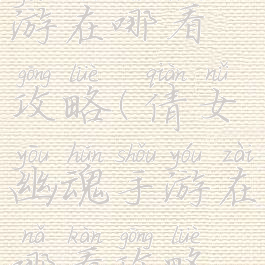 游在哪看
gōng lüè qiàn nǚ
攻略(倩女
yōu hún shǒu yóu zài
幽魂手游在
nǎ kàn gōng lüè
哪看攻略